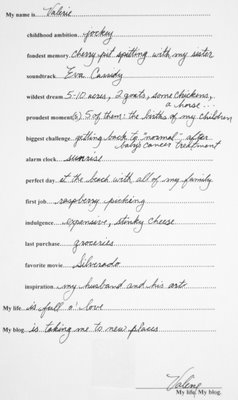 My name is Valerie
childhood ambition jockey
fondest memory cherry pit spitting with my sister
soundtrack Eva Cassidy
wildest dream 5-10 acres, 2 goats, some chickens,
a horse...
proudest moment(s) 5 of them: the births of my children
biggest challenge getting back to "normal" after
baby's cancer treatment
alarm clock sunrise
perfect day at the beach with all of my family
first job raspberry picking
indulgence expensive, stinky cheese
last purchase groceries
favorite movie Silverado
inspiration my husband and his art
My life is full o' love
My blog is taking me to new places
Valerie
My life. My blog.